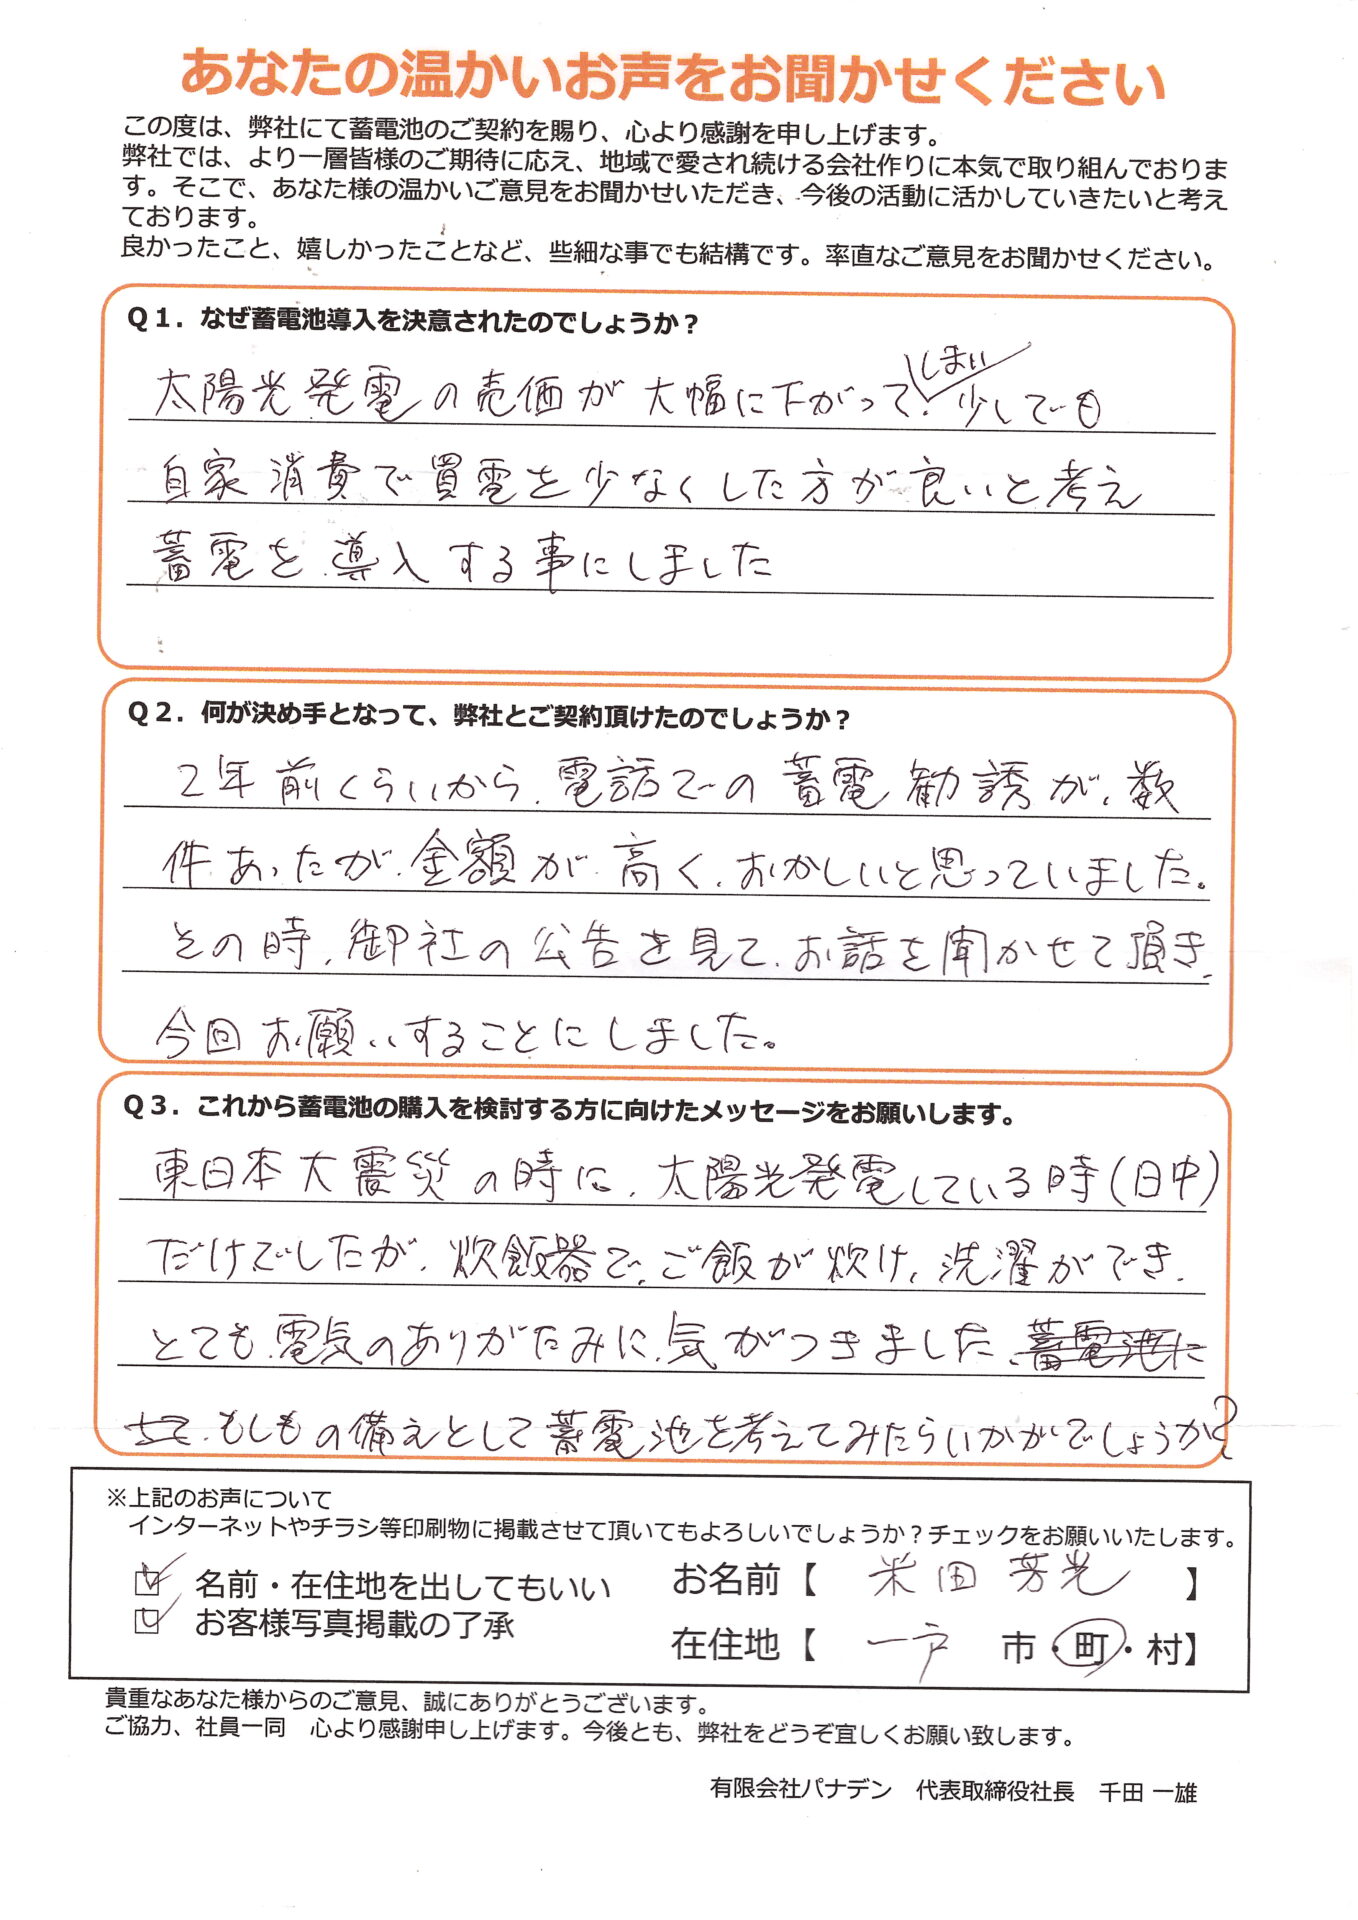 あなたの温かいお声をお聞かせください
この度は、弊社にて蓄電池のご契約を賜り、心より感謝を申し上げます。
弊社では、より一層皆様のご期待に応え、地域で愛され続ける会社作りに本気で取り組んでおりま
す。そこで、あなた様の温かいご意見をお聞かせいただき、今後の活動に活かしていきたいと考え
ております。
良かったこと、嬉しかったことなど、些細な事でも結構です。率直なご意見をお聞かせください。
Q1．なぜ蓄電池導入を決意されたのでしょうか？
太陽光発電の売価が大幅に下がってしまい、少しでも
自家消費で買電を少なくした方が良いと考え
蓄電を導入する事にしました
Q2．何が決め手となって、弊社とご契約頂けたのでしょうか？
2年前くらいから、電話での蓄電勧誘が、数
件あったが、金額が高く、おかしいと思っていました。
その時、御社の公告を見て、お話を聞かせて頂き、
今回お願いすることにしました。
Q3．これから蓄電池の購入を検討する方に向けたメッセージをお願いします。
東日本大震災の時に、太陽光発電している時(日中)
だけでしたが、炊飯器で、ご飯が炊け、洗濯ができ、
とても、電気のありがたみに、気がつきました、蓄電池に
もしもの備えとして蓄電池を考えてみたらいかがでしょうか?
※上記のお声について
インターネットやチラシ等印刷物に掲載させて頂いてもよろしいでしょうか？チェックをお願いいたします。
名前・在住地を出してもいい お名前【 米田 芳光 】
お客様写真掲載の了承
在住地【 一戸 市・町・村】
貴重なあなた様からのご意見、誠にありがとうございます。
ご協力、社員一同　心より感謝申し上げます。今後とも、弊社をどうぞ宜しくお願い致します。
有限会社パナデン　代表取締役社長　千田 一雄